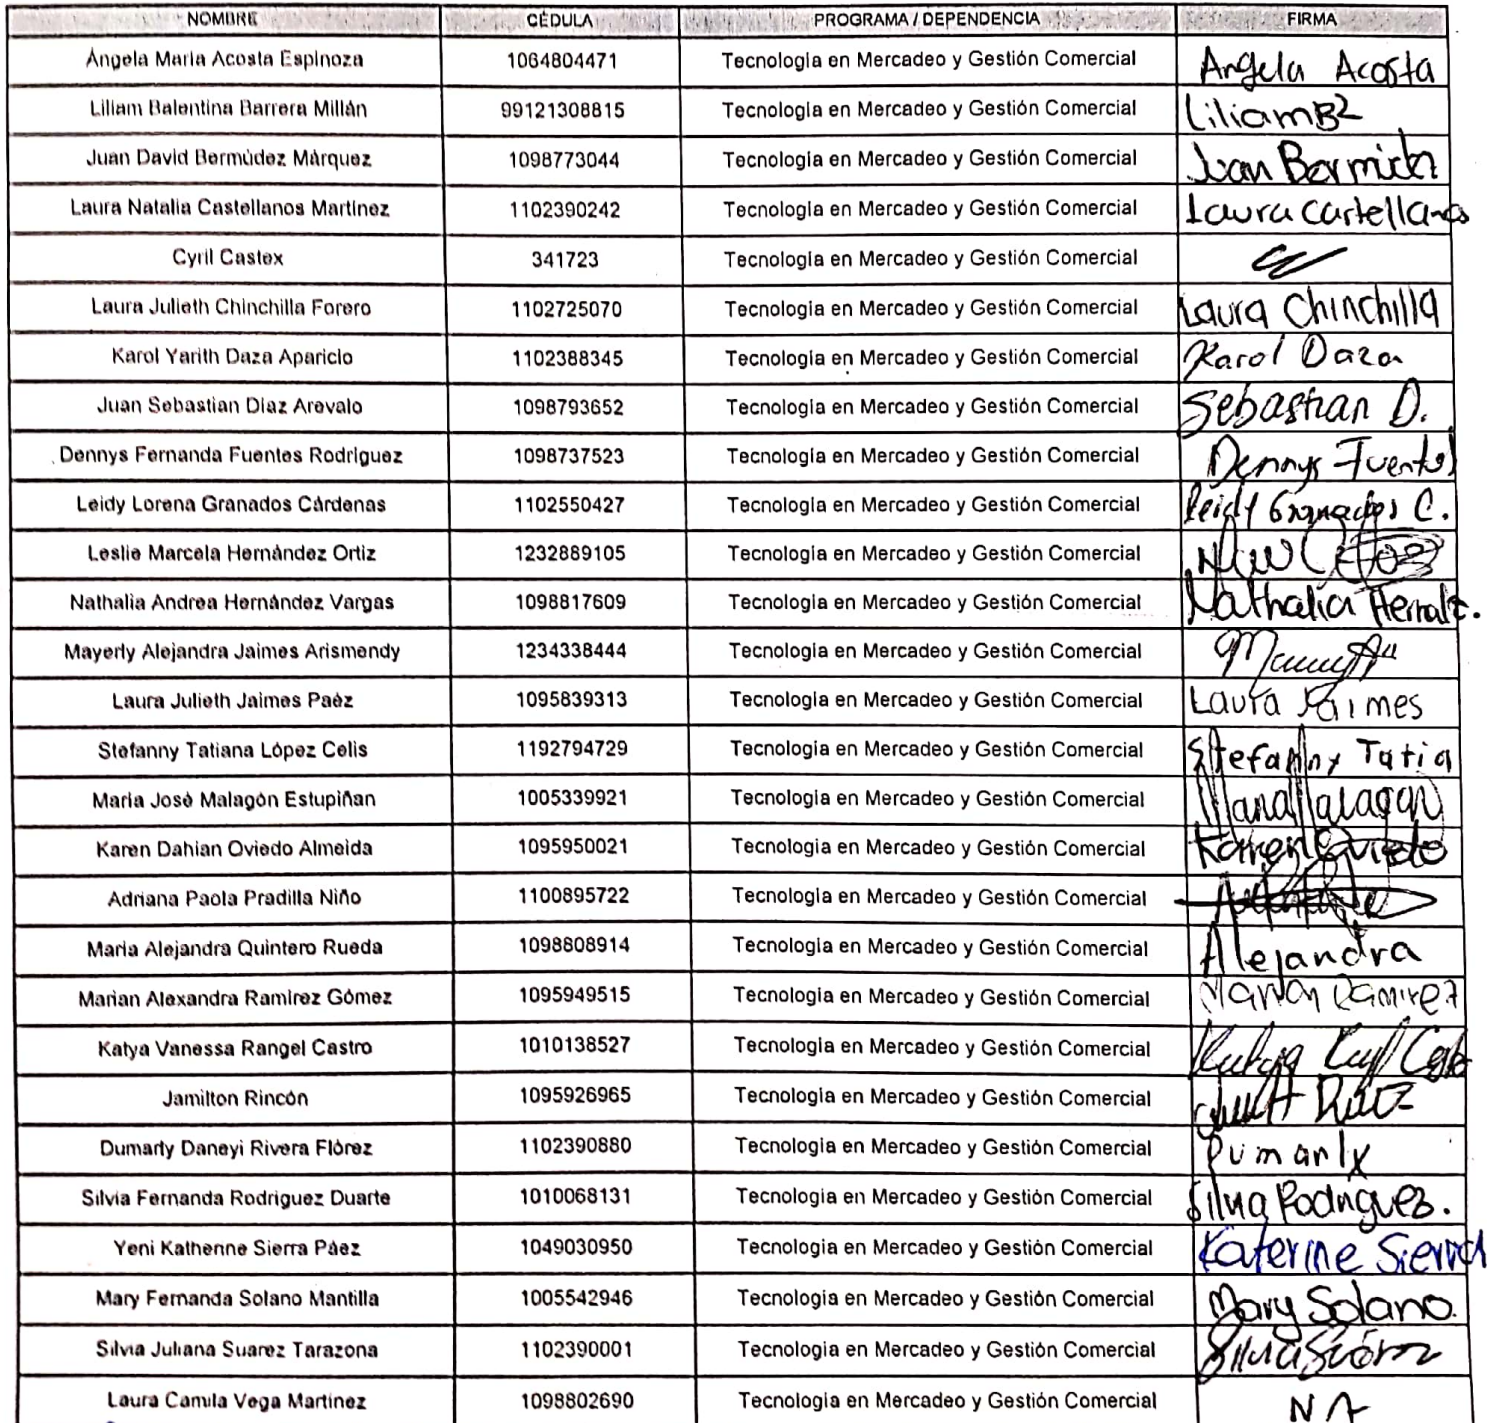 NOMBRE CÉDULA PROGRAMA / DEPENDENCIA FIRMA
Ángela María Acosta Espinoza 1064804471 Tecnología en Mercadeo y Gestión Comercial Angela Acosta
Liliam Balentina Barrera Millán 99121308815 Tecnología en Mercadeo y Gestión Comercial LiliamB2
Juan David Bermúdez Márquez 1098773044 Tecnología en Mercadeo y Gestión Comercial Juan
Laura Natalia Castellanos Martínez 1102390242 Tecnología en Mercadeo y Gestión Comercial Laura Castellanos
Cyril Castex 341723 Tecnología en Mercadeo y Gestión Comercial
Laura Julieth Chinchilla Forero 1102725070 Tecnología en Mercadeo y Gestión Comercial Laura Chinchilla
Karol Yarith Daza Aparicio 1102388345 Tecnología en Mercadeo y Gestión Comercial Karol Daza
Juan Sebastian Díaz Arevalo 1098793652 Tecnología en Mercadeo y Gestión Comercial Sebastian D.
Dennys Fernanda Fuentes Rodríguez 1098737523 Tecnología en Mercadeo y Gestión Comercial Dennys Fuentes
Leidy Lorena Granados Cárdenas 1102550427 Tecnología en Mercadeo y Gestión Comercial Leidy Granados C.
Leslie Marcela Hernández Ortiz 1232889105 Tecnología en Mercadeo y Gestión Comercial
Nathalia Andrea Hernández Vargas 1098817609 Tecnología en Mercadeo y Gestión Comercial Nathalia
Mayerly Alejandra Jaimes Arismendy 1234338444 Tecnología en Mercadeo y Gestión Comercial
Laura Julieth Jaimes Paéz 1095839313 Tecnología en Mercadeo y Gestión Comercial Laura Jaimes
Stefanny Tatiana López Celis 1192794729 Tecnología en Mercadeo y Gestión Comercial Stefanny Tatia
María José Malagón Estupiñan 1005339921 Tecnología en Mercadeo y Gestión Comercial Maria Malagon
Karen Dahian Oviedo Almeida 1095950021 Tecnología en Mercadeo y Gestión Comercial Karen Oviedo
Adriana Paola Pradilla Niño 1100895722 Tecnología en Mercadeo y Gestión Comercial
María Alejandra Quintero Rueda 1098808914 Tecnología en Mercadeo y Gestión Comercial Alejandra
Marian Alexandra Ramírez Gómez 1095949515 Tecnología en Mercadeo y Gestión Comercial Marian Ramirez
Katya Vanessa Rangel Castro 1010138527 Tecnología en Mercadeo y Gestión Comercial
Jamilton Rincón 1095926965 Tecnología en Mercadeo y Gestión Comercial
Dumarly Daneyi Rivera Flórez 1102390880 Tecnología en Mercadeo y Gestión Comercial Dumarly
Silvia Fernanda Rodríguez Duarte 1010068131 Tecnología en Mercadeo y Gestión Comercial Silvia Rodriguez.
Yeni Katherine Sierra Páez 1049030950 Tecnología en Mercadeo y Gestión Comercial Katerine Sierra
Mary Fernanda Solano Mantilla 1005542946 Tecnología en Mercadeo y Gestión Comercial Mary Solano.
Silvia Juliana Suarez Tarazona 1102390001 Tecnología en Mercadeo y Gestión Comercial Silvia Suárez
Laura Camila Vega Martínez 1098802690 Tecnología en Mercadeo y Gestión Comercial NA